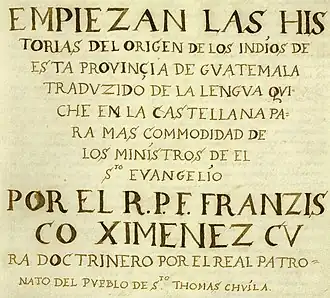 EMPIEZAN LAS HIS
TORIAS DEL ORIGEN DE LOS INDIOS DE
ESTA PROVINCIA DE GUATEMALA
TRADUZIDO DE LA LENGUA QUI
CHE EN LA CASTELLANA PA-
RA MAS COMMODIDAD DE
LOS MINISTROS DE EL
STO EVANGELIO
POR EL R.P.F. FRANZIS
CO XIMENEZ CU
RA DOCTRINERO POR EL REAL PATRO-
NATO DEL PUEBLO DE STO THOMAS CHUILA.